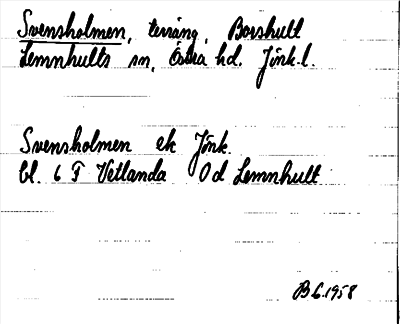 Svensholmen, terräng, Borshult
Lemnhults sn, Östra hd. Jönk.l.
Svensholmen ek Jönk.
bl. 6 F Vetlanda 0d Lemnhult
B6.1958